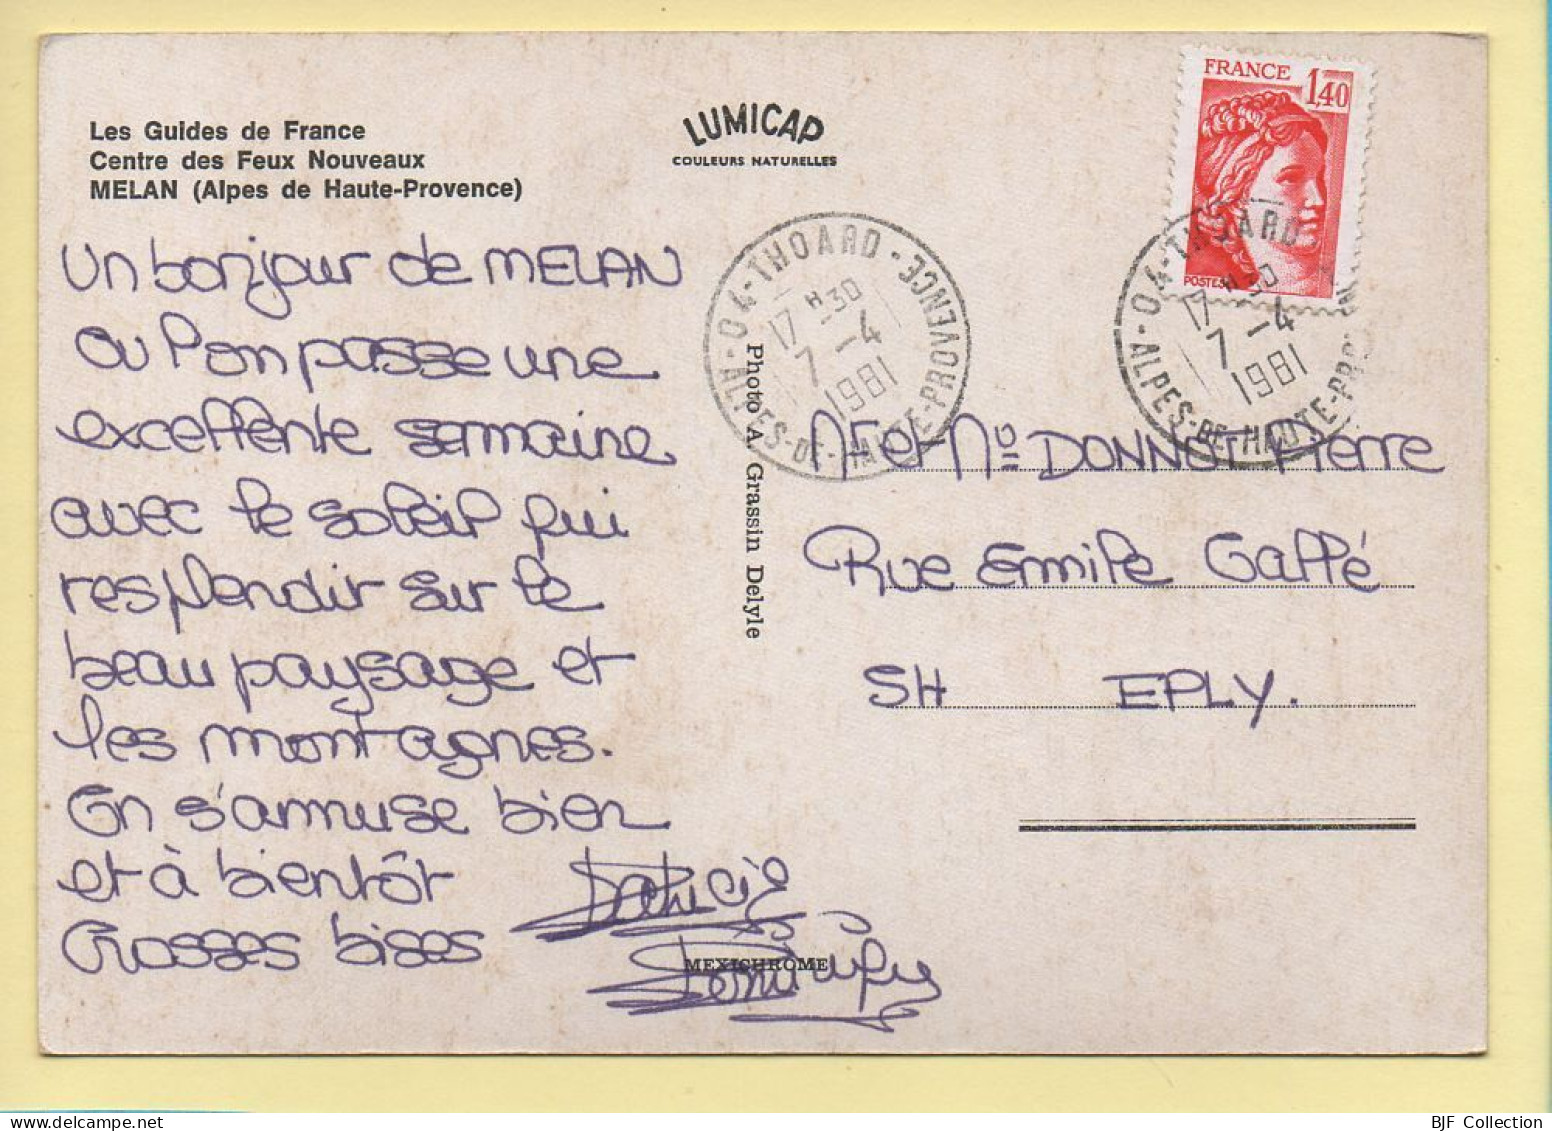 Les Guides de France
Centre des Feux Nouveaux
MELAN (Alpes de Haute-Provence)
LUMICAP
COULEURS NATURELLES
FRANCE 1,40
POSTES
04-THOARD-
17 H 30
7 -4
1981
ALPES-DE-HAUTE-PROVENCE
04-THOARD
17 H 30
7 -4
1981
ALPES-DE-HAUTE-PRO
Un bonjour de MELAN
ou l'on passe une
excellente semaine
avec le soleil qui
resplendir sur le
beau paysage et
les montagnes.
On s'amuse bien
et à bientôt
Grosses bises
Patricia
Photo A. Grassin Delyle
MEXICHROME
Mr et Me DONNOT Pierre
Rue Emile Gallé
54 EPLY.
BJF Collection